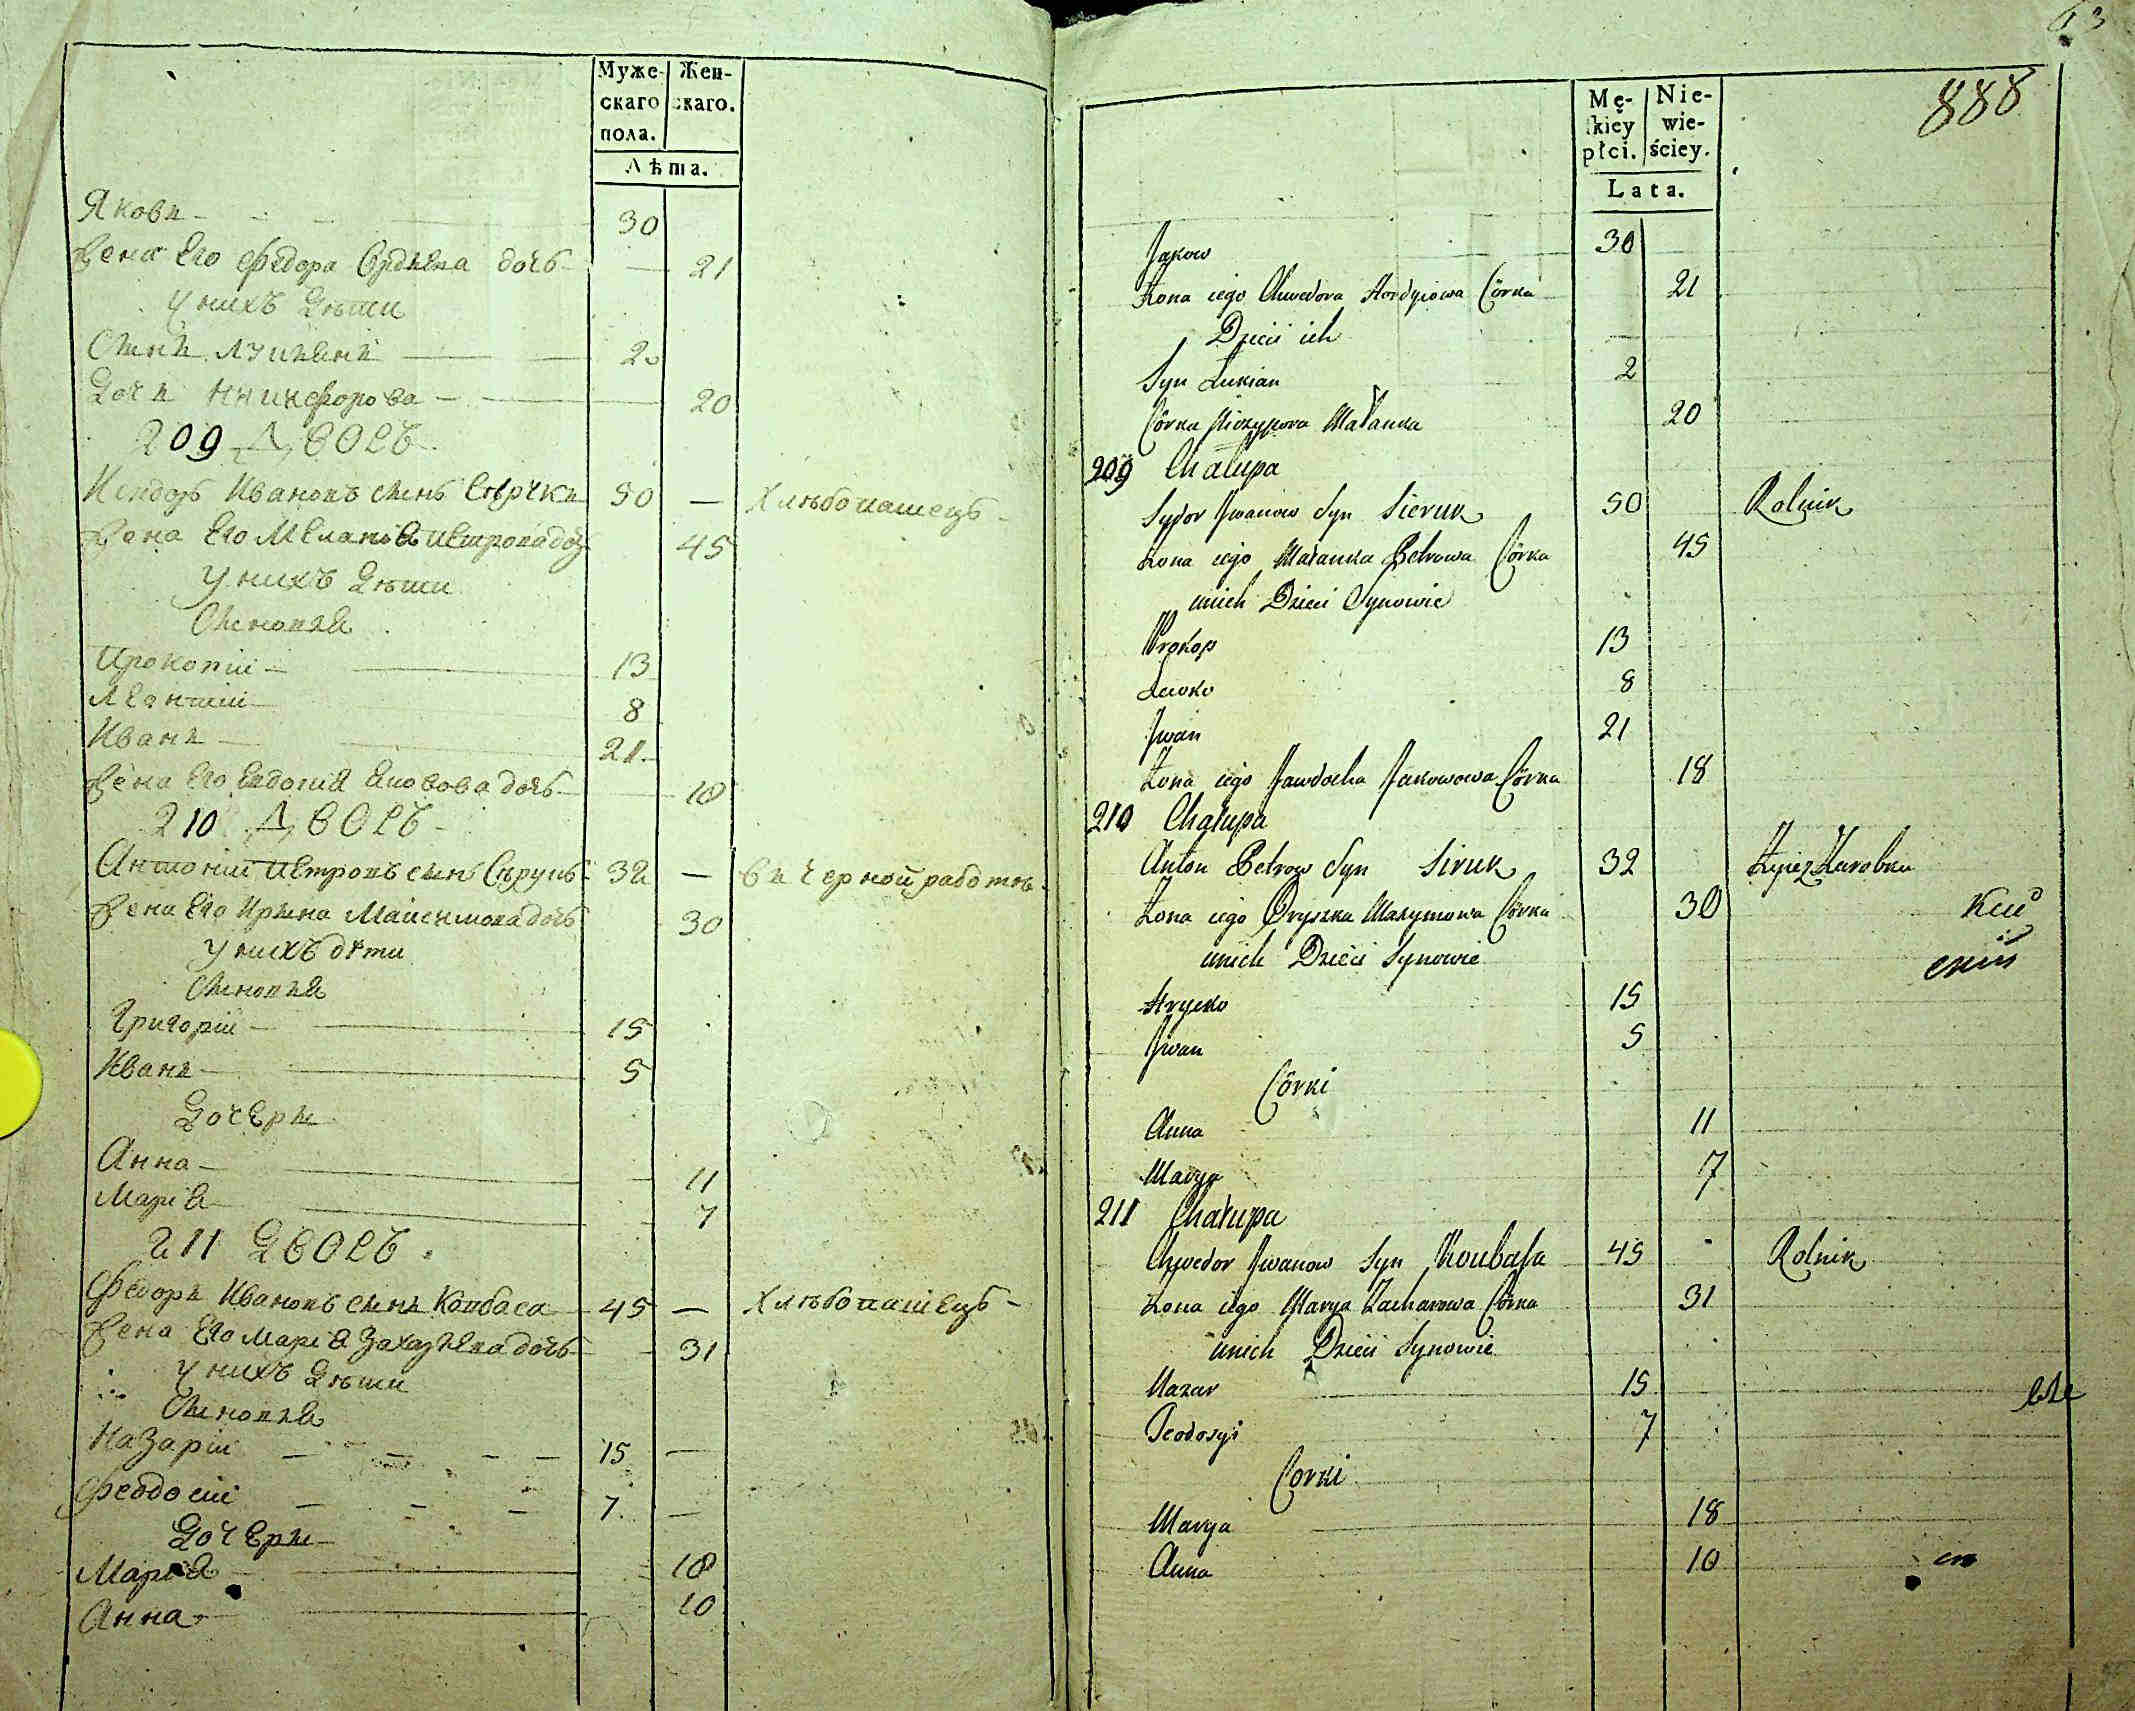 Муже-
скаго
пола.
Жен-
скаго.
Лѣта.
Яковъ 30
Жена Его Федора Ордѣева дочь 21
У нихъ Дѣти
Сынъ Лукіянъ 2
Дочь Никифорова 20
209 Дворъ
Исидоръ Ивановъ сынъ Сѣрукъ 50 — Хлѣбопашецъ
Жена Его Меланія Петрова дочь 45
У нихъ Дѣти
Сыновья
Прокопій 13
Леонтій 8
Иванъ 21
Жена Его Евдокія Яковова дочь 18
210 Дворъ
Антоній Петровъ сынъ Сѣрукъ 32 — въ черной работѣ
Жена Его Ирына Максимова дочь 30
У нихъ дѣти
Сыновья
Григорій 15
Иванъ 5
Дочеры
Анна 11
Марія 7
211 Дворъ
Федоръ Ивановъ сынъ Ковбаса 45 — Хлѣбопашецъ
Жена Его Марія Захарѣева дочь 31
У нихъ Дѣти
Сыновья
Назарій 15 —
Феодосій 7 —
Дочеры
Марія 18
Анна 10
63
888
Mę-
skiey
płci.
Nie-
wie-
ściey.
Lata.
Jakow 30
Zona iego Chwedora Hordyiowa Córka 21
Dzieci ich
Syn Łukian 2
Córka Niczypora Małanka 20
209 Chałupa
Sydor Jwanow Syn Sieruk 50 Rolnik
Zona iego Małanka Petrowa Córka 45
unich Dzieci Synowie
Prokop 13
Lewko 8
Jwan 21
Zona iego Jawdocha Jakowowa Córka 18
210 Chałupa
Anton Petrow Syn Siruk 32 Żyie z Zarobku
Zona iego Oryszka Maxymowa Córka 30
unich Dzieci Synowie
Hrycko 15
Jwan 5
Córki
Anna 11
Marya 7
211 Chałupa
Chwedor Jwanow Syn Koubasa 45 Rolnik
Zona iego Marya Zacharowa Córka 31
unich Dzieci Synowie
Nazar 15
Teodosyi 7
Corki
Marya 18
Anna 10